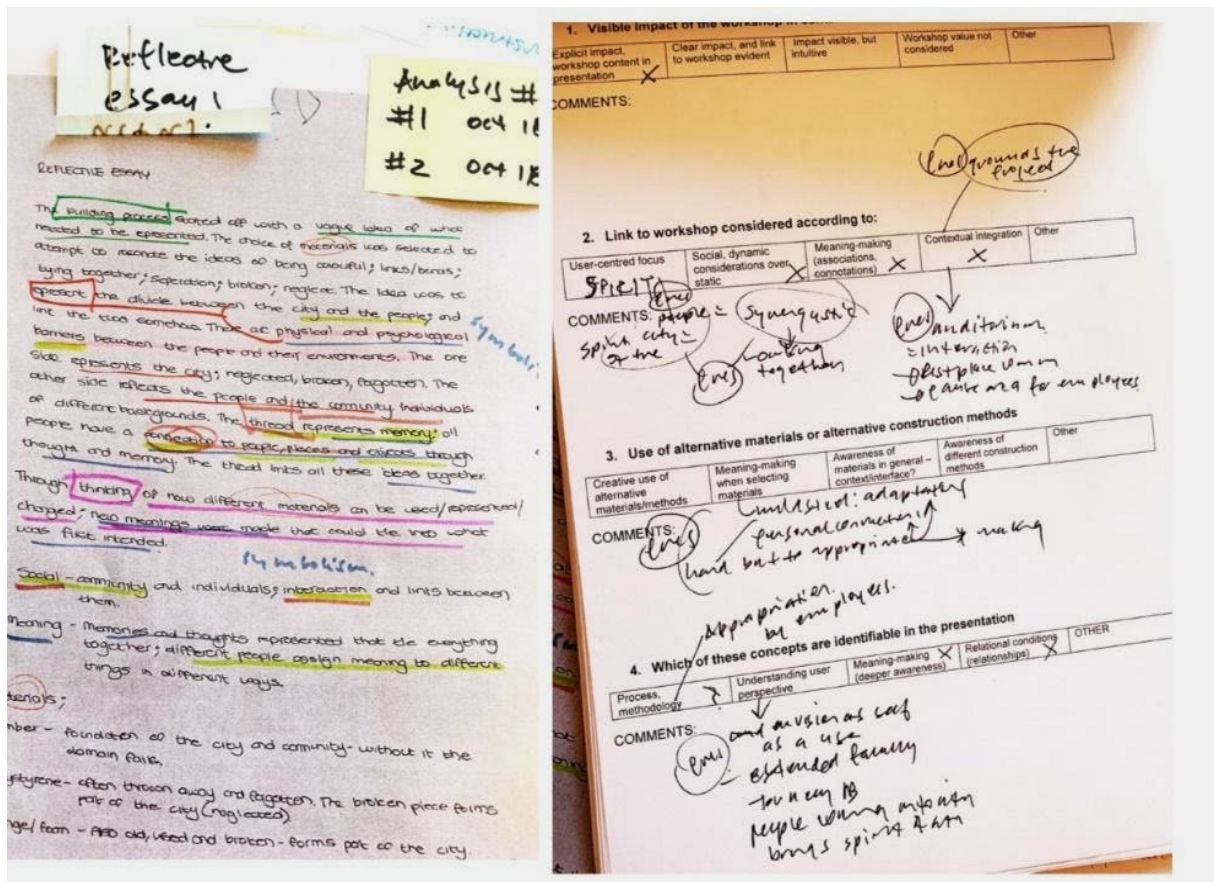 Reflective
essay!
Analysis #
#1 Oct 18
#2 Oct 18
REFLECTIVE ESSAY
The building process started off with a vague idea of what
needed to be represented. The choice of materials was selected to
attempt to recreate the ideas of being colourful; links/bonds;
tying together; seperation; broken; neglect. The idea was to
represent the divide between the city and the people; and
link the two somehow. There are physical and psychological
barriers between the people and their enviroments. The one
side represents the city; neglected, broken, forgotten. The
other side reflects the people and the comunity individuals
of different backgrounds. The thread represents memory; all
people have a connection to people, places and objects through
thought and memory. The thread links all these ideas together.
Through thinking of how different materials can be used/represented/
changed; new meanings were made that could tie into what
was first intended.
symbolism.
Social - community and individuals; interaction and links between
them.
Meaning - Memories and thoughts represented that tie everything
together; different people assign meaning to different
things in different ways.
foundation of the city and comunity - without it the
domain fails.
often thrown away and forgotten. The broken piece forms
part of the city (neglected)
old, used and broken - forms part of the city.
1. Visible impact of the workshop in
Explicit impact, workshop content in presentation X
Clear impact, and link to workshop evident
Impact visible, but intuitive
Workshop value not considered
Other
COMMENTS:
grounds the
project
2. Link to workshop considered according to:
User-centred focus
Social, dynamic considerations over static X
Meaning-making (associations, connotations) X
Contextual integration X
Other
SPIRIT
COMMENTS: people =
synergistic
spirit city =
of the
working
together
auditorium
= interaction
for employees
3. Use of alternative materials or alternative construction methods
Creative use of alternative materials/methods
Meaning-making when selecting materials
Awareness of materials in general – context/interface?
Awareness of different construction methods
Other
COMMENTS:
hard but to appropriate
making
Appropriation
by employees.
4. Which of these concepts are identifiable in the presentation
Process, methodology ?
Understanding user perspective
Meaning-making (deeper awareness) X
Relational conditions (relationships) X
OTHER
COMMENTS:
as a use
extended family
people
brings spirit